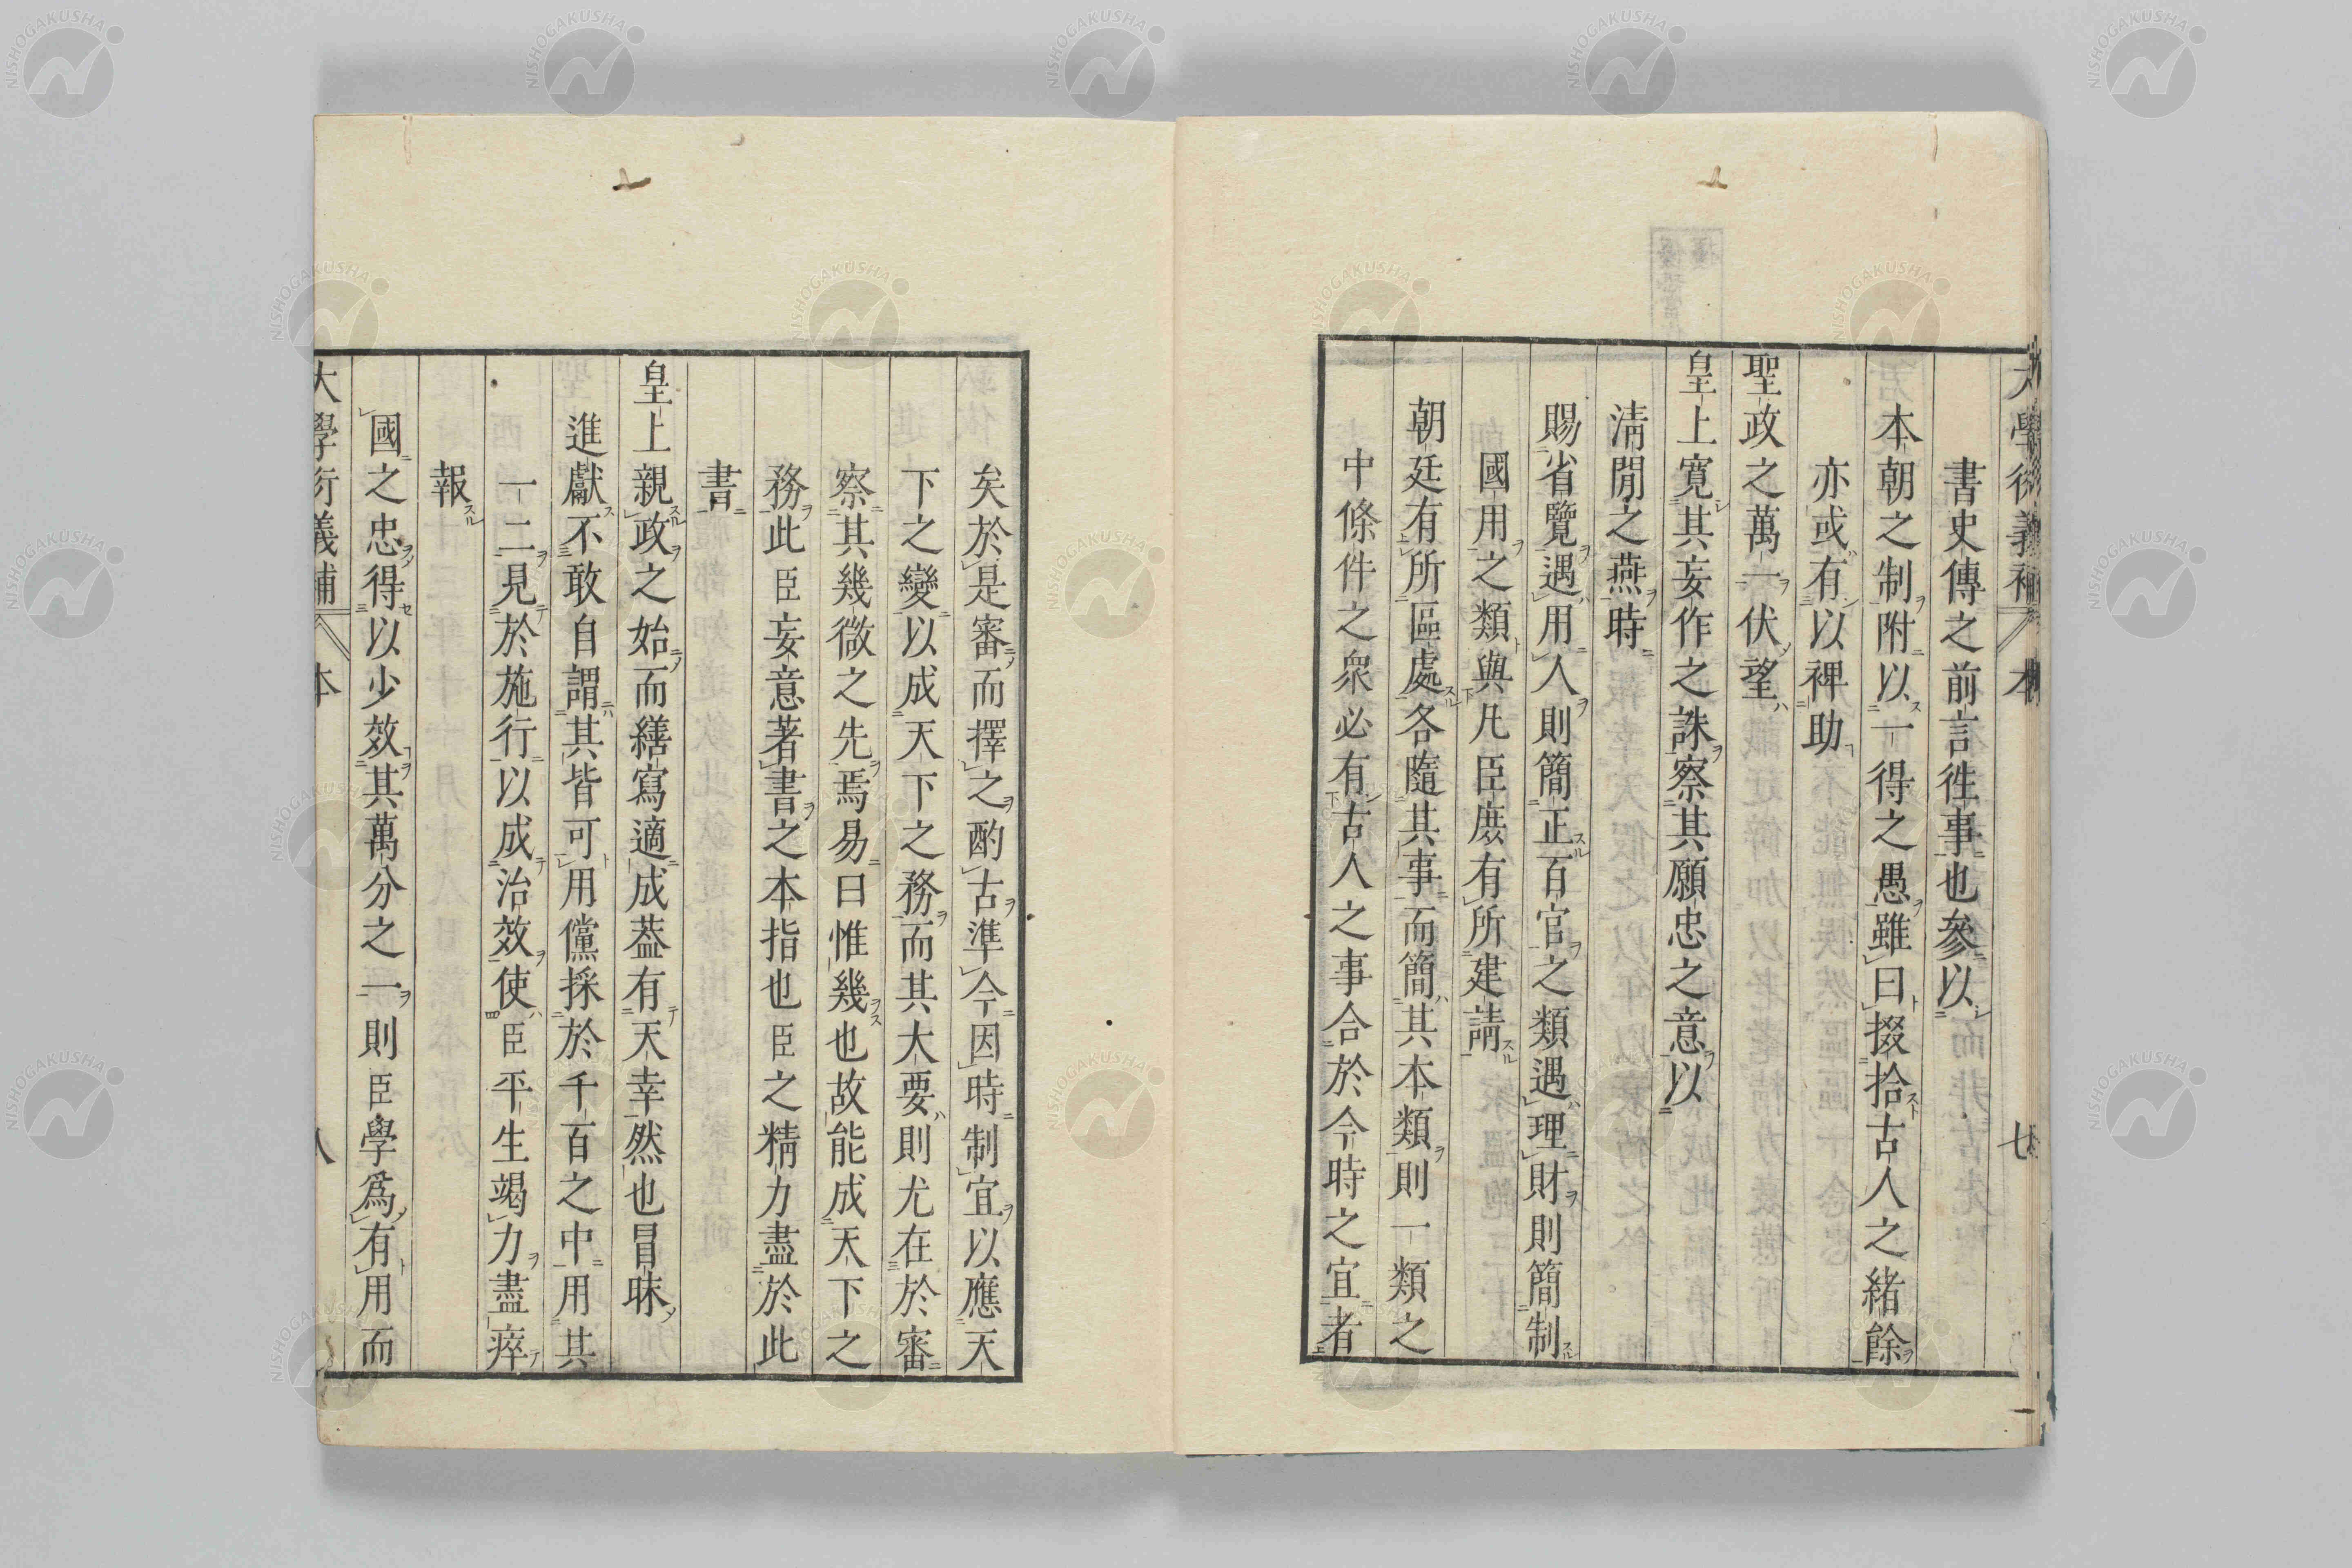 書史傳之前言徃事也參以
本朝之制附以一得之愚雖曰掇拾古人之緒餘
亦或有以裨助
聖政之萬一伏望
皇上寬其妄作之誅察其願忠之意以
清閒之燕時
賜省覽遇用人則簡正百官之類遇理財則簡制
國用之類與凡臣庶有所建請
朝廷有所區處各隨其事而簡其本類則一類之
中條件之衆必有古人之事合於今時之宜者
矣於是審而擇之酌古準今因時制宜以應天
下之變以成天下之務而其大要則尤在於審
察其幾微之先焉易曰惟幾也故能成天下之
務此臣妄意著書之本指也臣之精力盡於此
書
皇上親政之始而繕寫適成葢有天幸然也冒昧
進獻不敢自謂其皆可用儻採於千百之中用其
一二見於施行以成治效使臣平生竭力盡瘁
報
國之忠得以少效其萬分之一則臣學爲有用而
大學衍義補 本 八